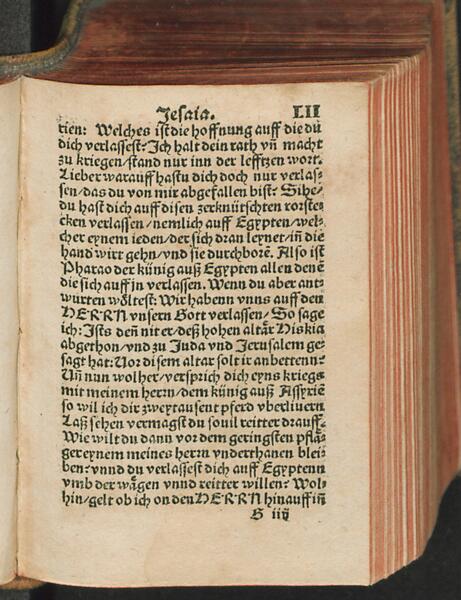 Jesaia. LII
rien: Welches ist die hoffnung auff die du
dich verlassest? Ich halt dein rath vñ macht
zu kriegen / stand nur inn der lefftzen wort.
Lieber warauff hastu dich doch nur verlas-
sen / das du von mir abgefallen bist? Sihe /
du hast dich auff disen zerknütschten rorste-
cken verlassen / nemlich auff Egypten / wel-
cher eynem ieden / der sich dran leynet / iñ die
hand wirt gehn / vnd sie durchborẽ. Also ist
Pharao der künig auß Egypten allen denẽ
die sich auff jn verlassen. Wenn du aber ant-
wurten wöltest: Wir habenn vnns auff den
HERRN vnsern Gott verlassen / So sage
ich: Ists deñ nit er / deß hohen altär Hiskia
abgethon / vnd zu Juda vnd Jerusalem ge-
sagt hat: Vor disem altar solt ir anbettenn?
Uñ nun wolher / versprich dich eyns kriegs
mit meinem herrn / dem künig auß Assyriẽ
so wil ich dir zwey tausent pferd vberliuern
Laß sehen vermagst du souil reitter drauff.
Wie wilt du dann vor dem geringsten pflä-
ger eynem meines herrn vnderthanen blei-
ben? vnnd du verlassest dich auff Egyptenn
vmb der wägen vnnd reitter willen? Wol-
hin / gelt ob ich on den HERRN hinauff iñ
G iiij